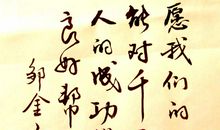 愿我们的
能对千
人的成功
良好帮
邹金